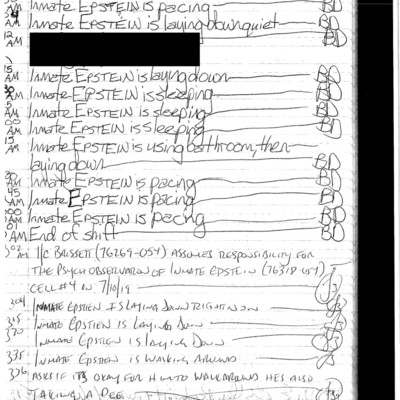 AM Inmate EPSTEIN is pacing BD
AM Inmate EPSTEIN is laying down quiet BD
AM BD
15 AM Inmate EPSTEIN is laying down BD
30 AM Inmate EPSTEIN is sleeping BD
AM Inmate EPSTEIN is sleeping BD
00 AM Inmate EPSTEIN is sleeping BD
15 AM Inmate EPSTEIN is using bathroom, then
laying down BD
30 AM Inmate EPSTEIN is pacing BD
45 AM Inmate EPSTEIN is pacing BD
00 AM Inmate EPSTEIN is pacing BD
01 AM End of shift BD
AM I/C BRISSETT (76269-054) ASSUMES RESPONSIBILITY FOR
THE PSYCH OBSERVATION OF INMATE EPSTEIN (76318-054)
CELL #4 IN 7/10/19
304 INMATE EPSTIEN IS LAYING DOWN RIGHT NOW
315 INMATE EPSTIEN IS LAYING DOWN
INMATE EPSTIEN IS LAYING DOWN
335 INMATE EPSTIEN IS WALKING AROUND
336 ASKS IF ITS OKAY FOR HIM TO WALK AROUND HES ALSO
TAKING A PEE